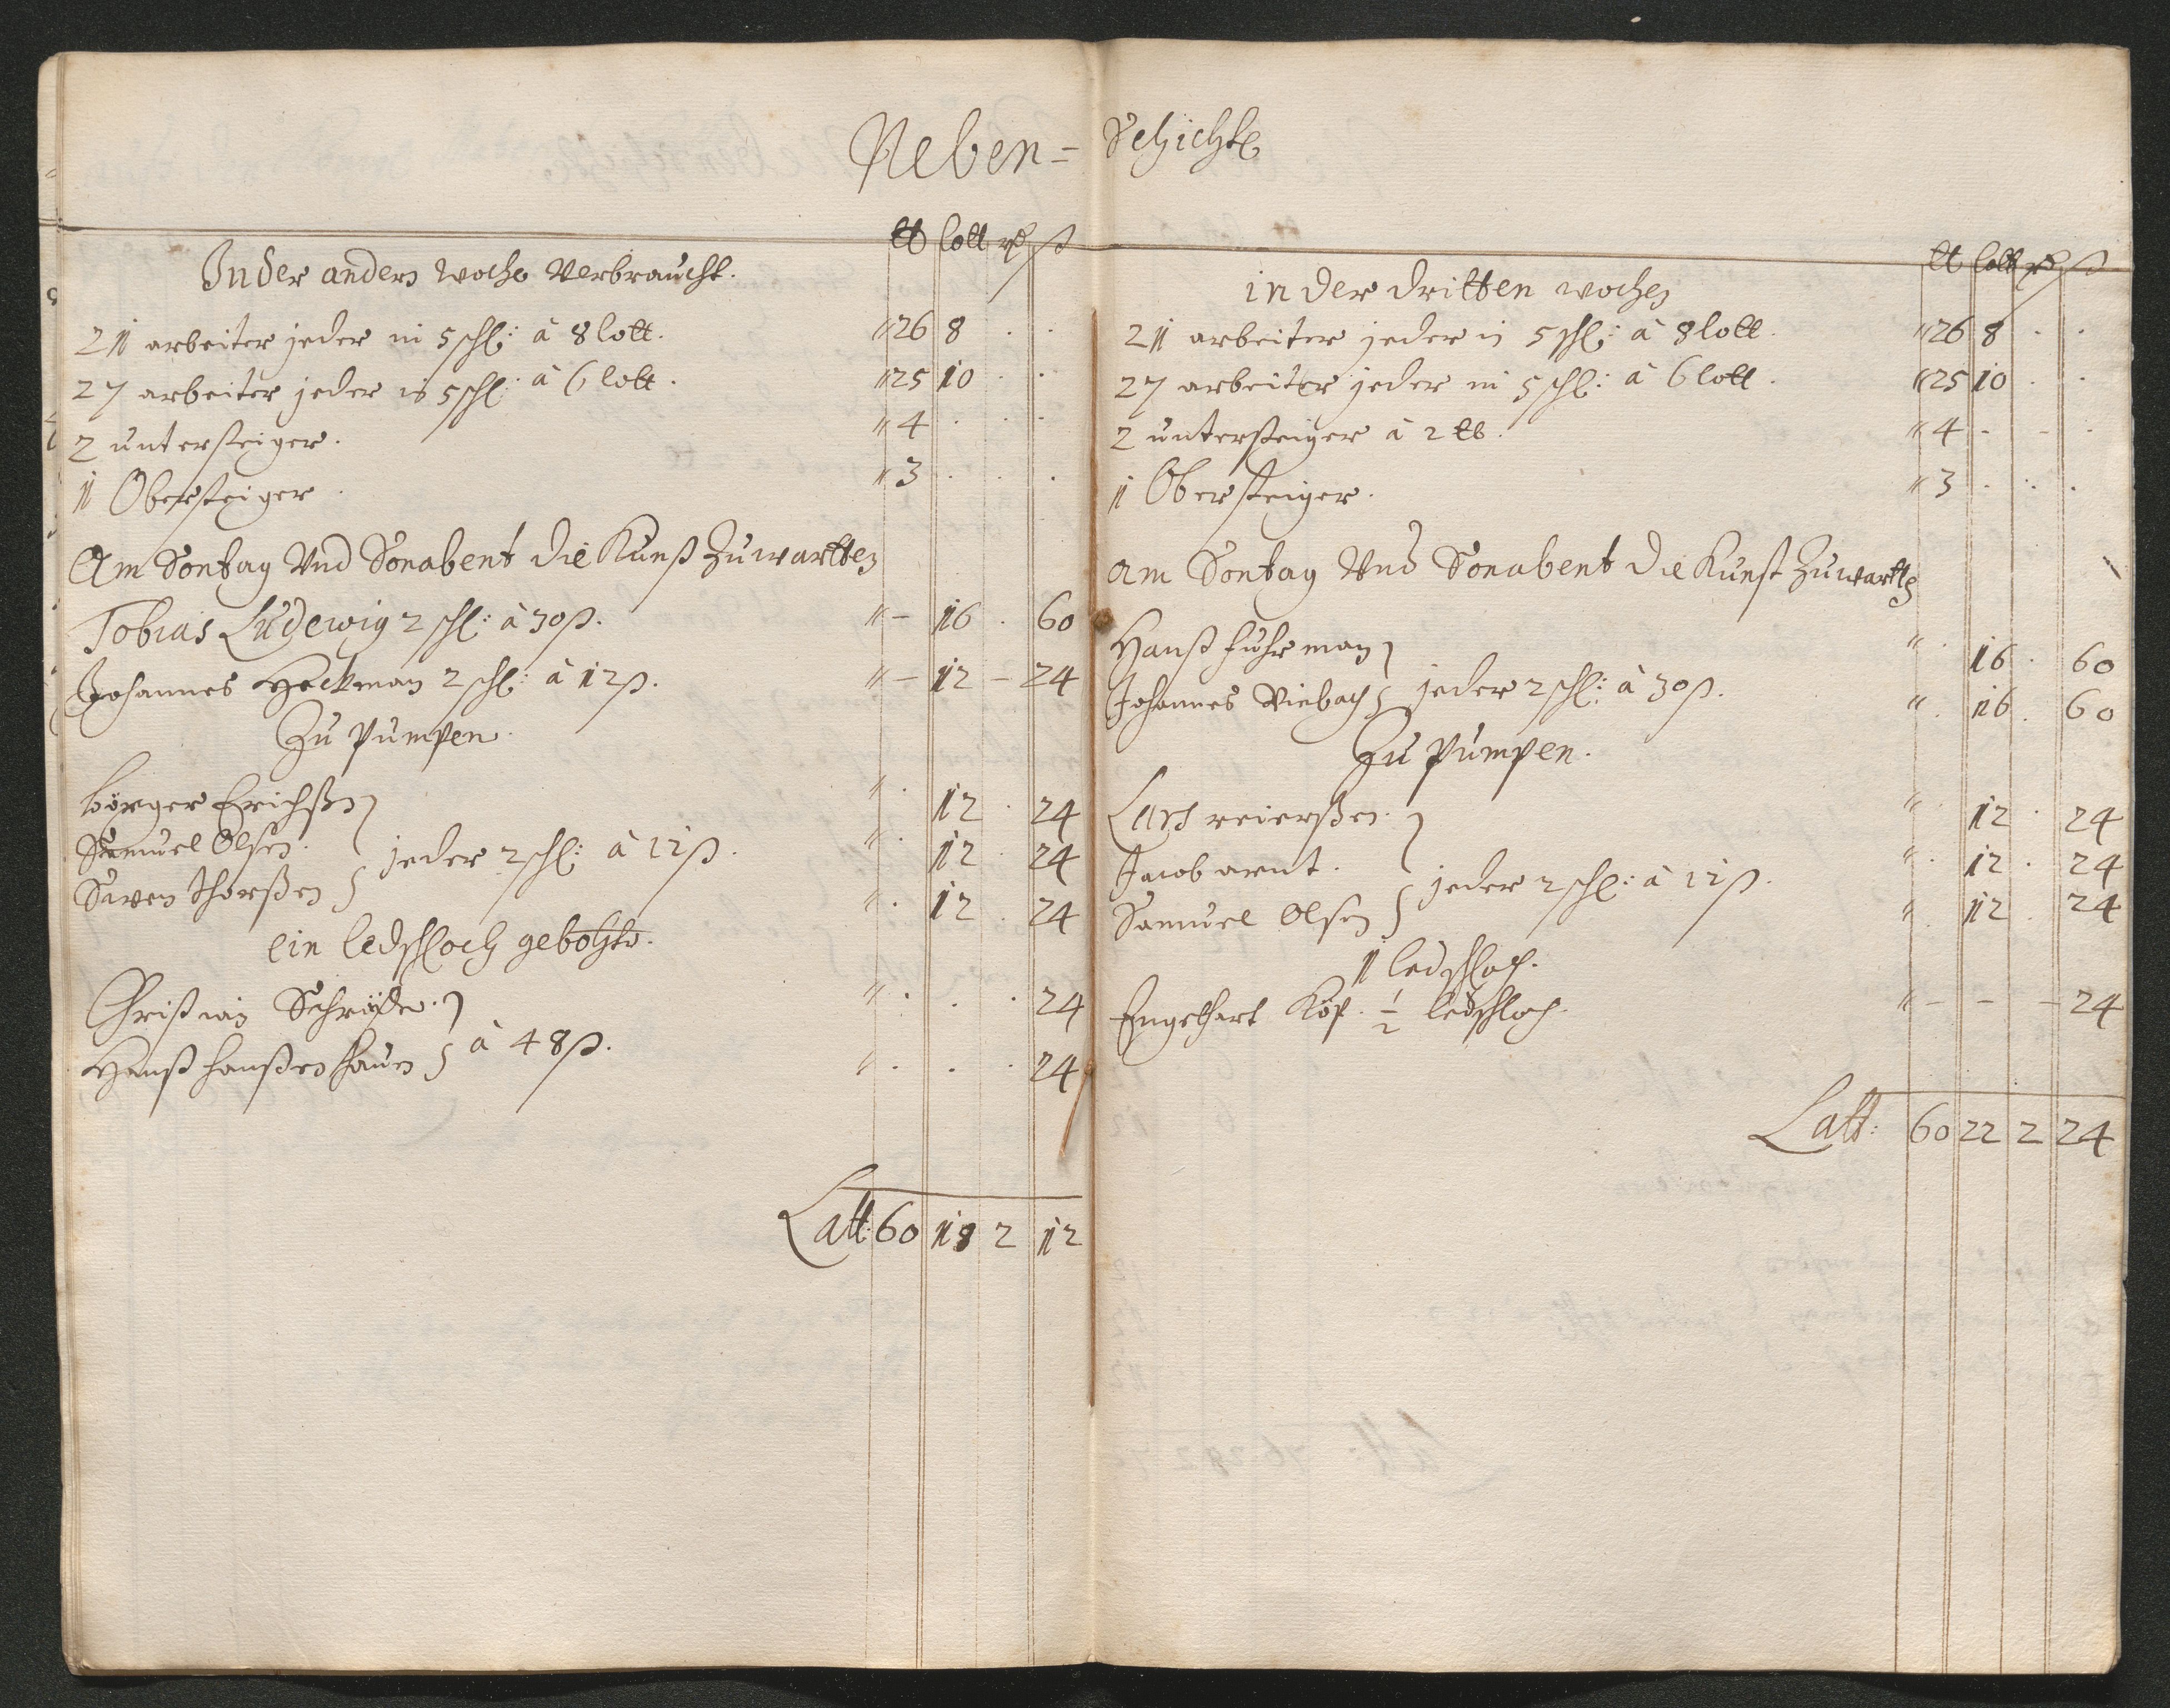 Neben= Schichte
℔ lott rd ß
In der andern woche Verbraucht.
21 arbeiter jeder in 5 schl: à 8 lott. " 26 8 . .
27 arbeiter jeder in 5 schl: à 6 lott. " 25 10 . .
2 untersteiger. " 4 . . .
1 Obersteiger. " 3 . . .
Am Sontag Und Sonabent die Kunst Zuwartten
Tobias Ludewig 2 schl: à 30 ß. " - 16 . 60
Johannes Heckman 2 schl: à 12 ß. " - 12 - 24
Zu pumpen.
börger Erichßen " . 12 . 24
Samuel Olsen. jeder 2 schl: à 12 ß. " . 12 . 24
Swen Thorßen " . 12 . 24
ein ledschloch gebohrt.
Christian Schröder. " . . . 24
Hanß hanßen haun à 48 ß. " . . . 24
Latt: 60 18 2 12
℔ lott rd ß
in der dritten wochen
21 arbeiter jeder in 5 schl: à 8 lott. " 26 8 . .
27 arbeiter jeder in 5 schl: à 6 lott. " 25 10 . .
2 untersteiger à 2 ℔. " 4 - - .
1 Obersteiger. " 3 . . .
am Sontag Und Sonabent die Kunst Zuwartten
Hanß fuhrman " . 16 . 60
Johannes Viebach jeder 2 schl: à 30 ß. " . 16 . 60
Zu pumpen.
Lars reierßen. " . 12 . 24
Jacob arent. " . 12 . 24
Samuel Olsen jeder 2 schl: à 12 ß. " . 12 . 24
1 ledschloch.
Engelhart Köp. 1/2 ledschloch. " - - - 24
Latt: 60 22 2 24